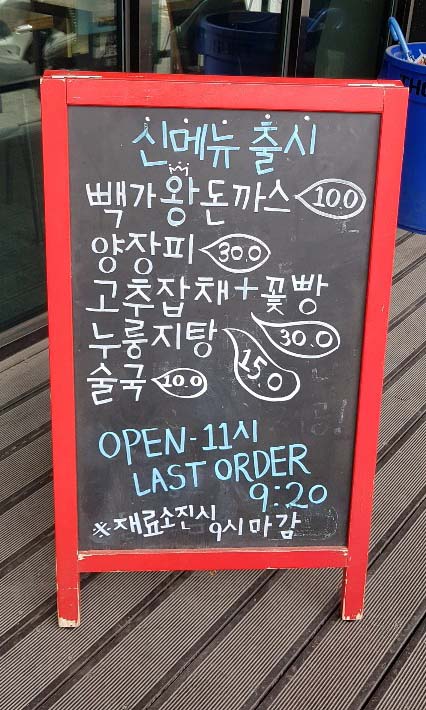 신메뉴 출시
빽가왕돈까스 10.0
양장피 30.0
고추잡채+꽃빵 30.0
누룽지탕 15.0
술국 10.0
OPEN-11시
LAST ORDER
9:20
※재료소진시 9시마감